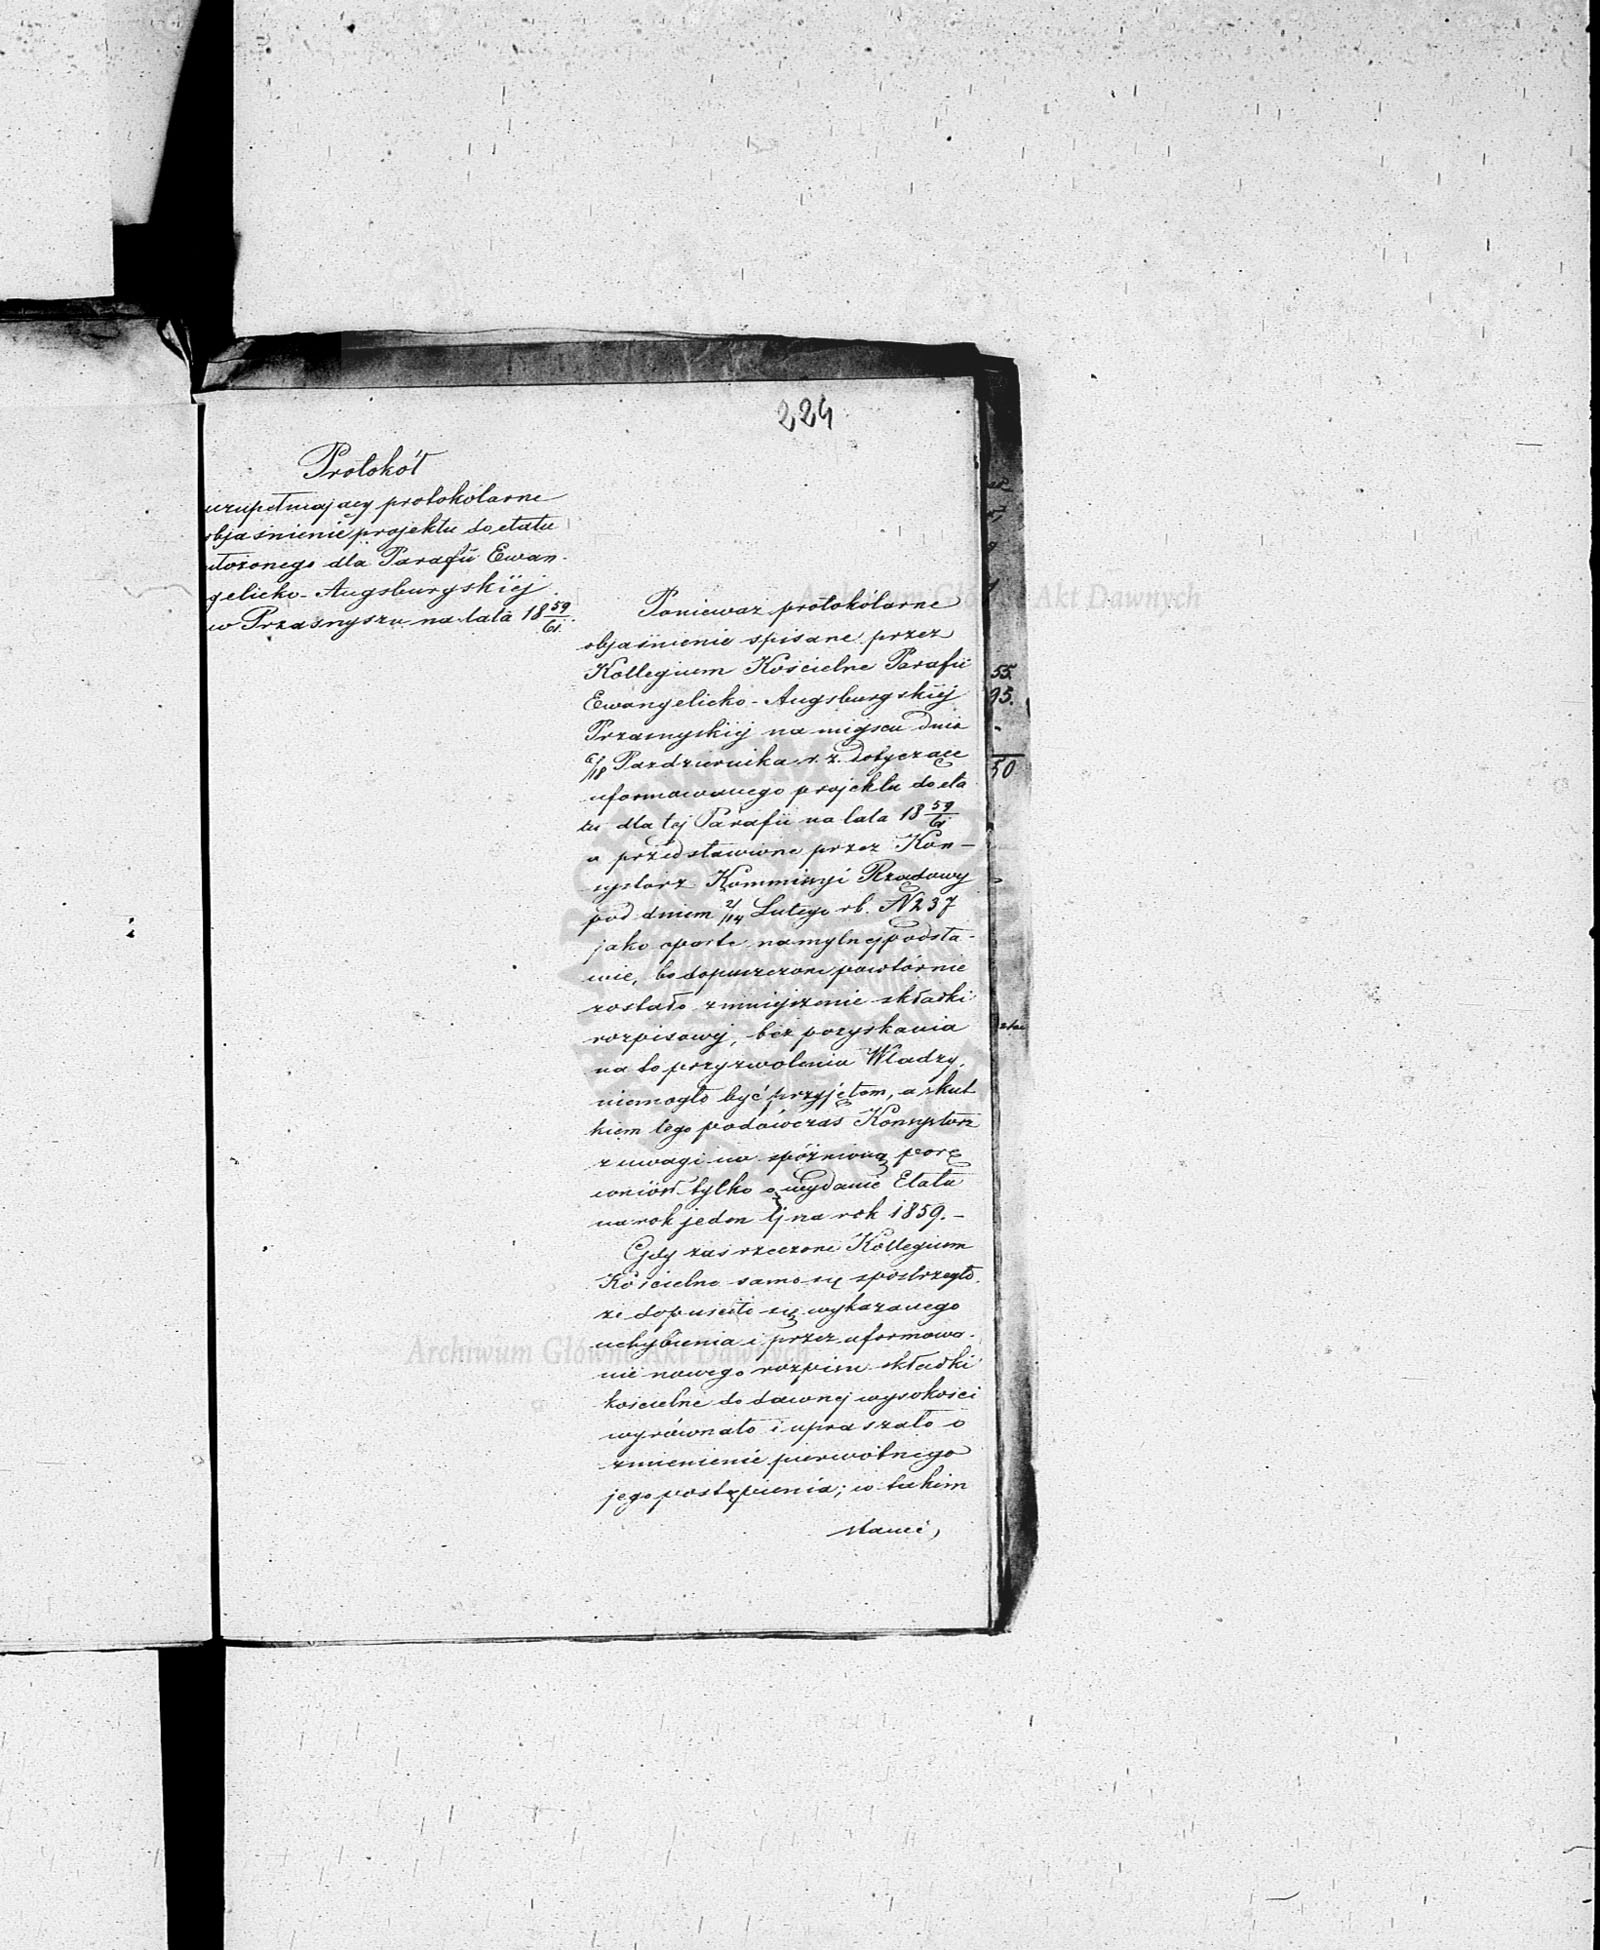 224
Protokół
uzupełniający protokólarne
objaśnienie projektu do etatu
ułożonego dla Parafii Ewan-
gelicko-Augsburgskiej
w Przasnyszu na lata 18 59/61.
Ponieważ protokólarne
objaśnienie spisane przez
Kollegium Kościelne Parafii
Ewangelicko-Augsburgskiej
Przasnyskiej na miejscu dnia
6/18 Października r. z. dotyczące
uformowanego projektu do eta
tu dla tej Parafii na lata 18 59/61
a przedstawione przez Kon-
systorz Kommissyi Rządowej
pod dniem 2/14 Lutego rb. N 237
jako oparte na mylnej podsta-
wie, bo dopuszczone powtórnie
zostało zmniejszenie składki
rozpisowej, bez pozyskania
na to przyzwolenia Władzy,
niemogło być przyjętem, a skut
kiem tego podówczas Konsystorz
z uwagi na spóźnioną porę
wniósł tylko o wydanie Etatu
na rok jeden tj na rok 1859.-
Gdy zaś rzeczone Kollegium
Kościelne samo się spostrzegło
że dopuściło się wykazanego
uchybienia i przez uformowa-
nie nowego rozpisu składki
kościelne do dawnej wysokości
wyrównało i upraszało o
zmienienie pierwotnego
jego postąpienia; w takim
stanie,
55.
95.
50
Archiwum Główne Akt Dawnych
Archiwum Główne Akt Dawnych